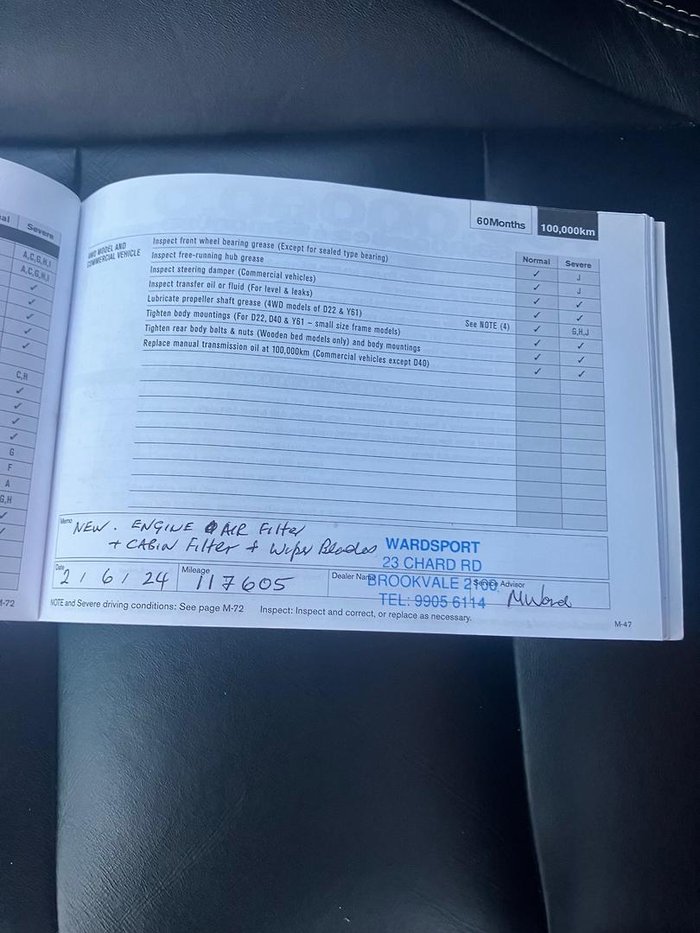 al
Severe
A,C,G,H,I
A,C,G,H,I
✓
✓
✓
✓
C,H
✓
✓
✓
✓
G
F
A
G,H
✓
✓
-72
60Months
100,000km
Normal
Severe
4WD MODEL AND
COMMERCIAL VEHICLE
Inspect front wheel bearing grease (Except for sealed type bearing) ✓ J
Inspect free-running hub grease ✓ J
Inspect steering damper (Commercial vehicles) ✓ ✓
Inspect transfer oil or fluid (For level & leaks) ✓ ✓
Lubricate propeller shaft grease (4WD models of D22 & Y61) See NOTE (4) ✓ G,H,J
Tighten body mountings (For D22, D40 & Y61 – small size frame models) ✓ ✓
Tighten rear body bolts & nuts (Wooden bed models only) and body mountings ✓ ✓
Replace manual transmission oil at 100,000km (Commercial vehicles except D40) ✓ ✓
Memo
NEW. ENGINE AIR Filter
+ CABIN Filter + Wiper Blades
WARDSPORT
23 CHARD RD
BROOKVALE 2100
TEL: 9905 6114
Date
2 / 6 / 24
Mileage
117605
Dealer Name
Service Advisor
MWard
NOTE and Severe driving conditions: See page M-72 Inspect: Inspect and correct, or replace as necessary.
M-47